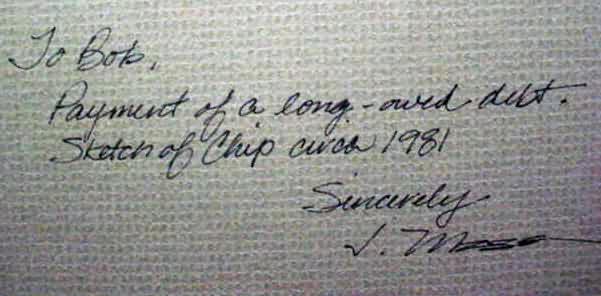 To Bob,
Payment of a long-owed debt.
Sketch of Chip circa 1981
Sincerely
J.